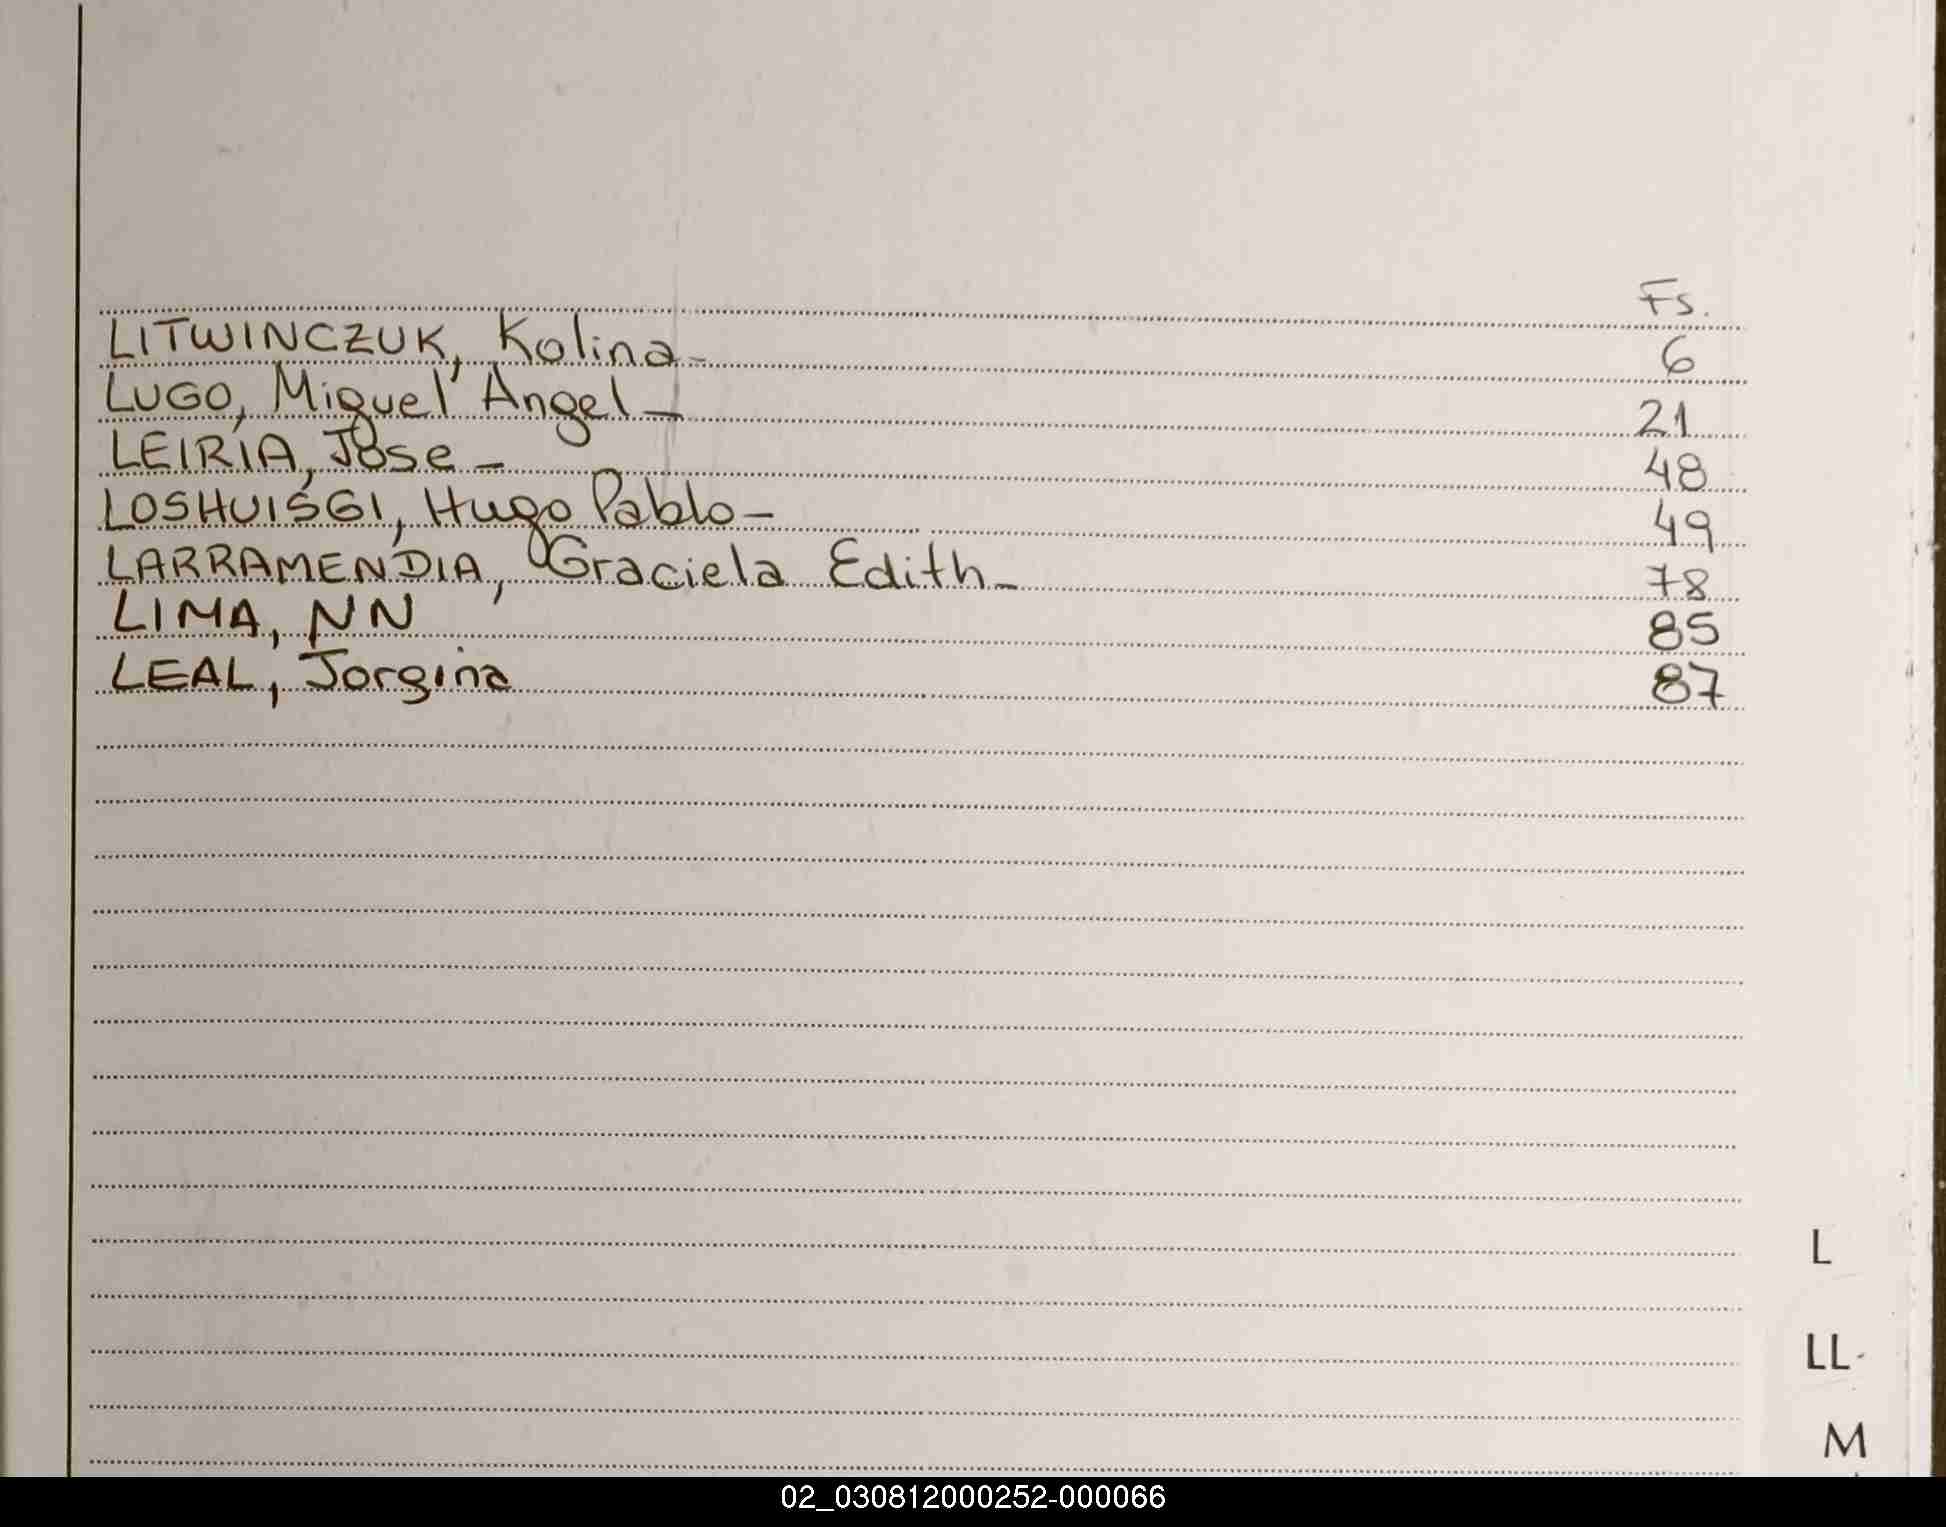 Fs.
LITWINCZUK, Kolina- 6
LUGO, Miguel Angel- 21
LEIRIA, Jose- 48
LOSHUISGI, Hugo Pablo- 49
LARRAMENDIA, Graciela Edith- 78
LIMA, NN 85
LEAL, Jorgina 87
L
LL
M
02_030812000252-000066